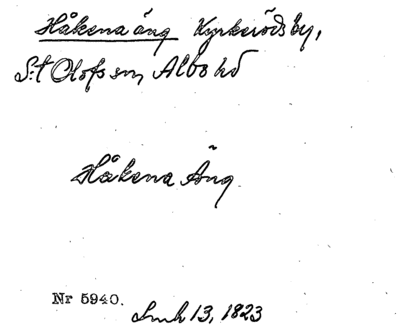 Håkena äng Kyrkeröds by,
S:t Olofs sn, Albo hd
Håkena Äng.
Nr 5940.
Lmk 13, 1823